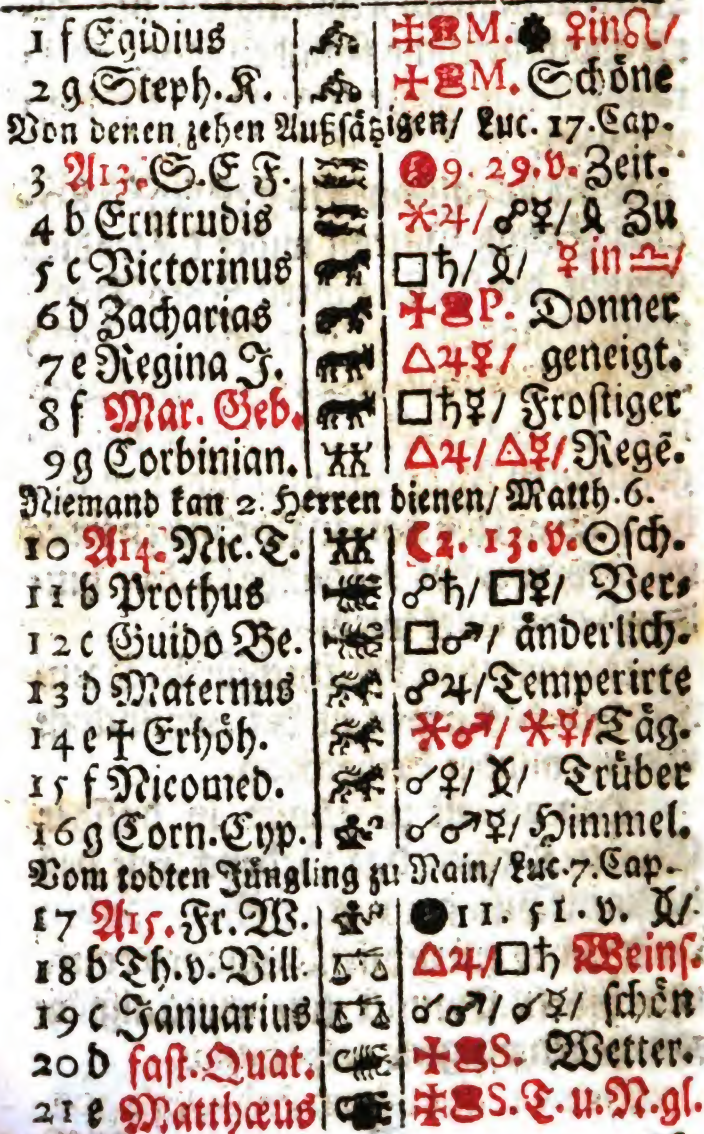 1 f Egidius M. ♀in♌/
2 g Steph. K. M. Schöne
Von denen zehen Außsätzigen/ Luc. 17. Cap.
3 A13. S. E F. 9. 29. v. Zeit.
4 b Erntrudis ⚹♃/ ☍☿/ Zu
5 c Victorinus □♄/ ☿ in ♎/
6 d Zacharias P. Donner
7 e Regina J. △♃☿/ geneigt.
8 f Mar. Geb. □♄☿/ Frostiger
9 g Corbinian. △♃/ △☿/ Regē.
Niemand kan 2. Herren dienen/ Matth. 6.
10 A14. Nic. T. ☾2. 13. v. ☉sch.
11 b Prothus ☍♄/ □☿/ Ver⸗
12 c Guido Be. □♂/ änderlich.
13 d Maternus ☍♃/ Temperirte
14 e ✝ Erhöh. ⚹♂/ ⚹☿/ Täg.
15 f Nicomed. ☌♀/ Trüber
16 g Corn. Cyp. ☌♂☿/ Himmel.
Vom todten Jüngling zu Nain/ Luc. 7. Cap.
17 A15. Fr. W. ●11. 51. v.
18 b Th. v. Vill. △♃/ □♄ Weins.
19 c Januarius ☌♂/ ☌☿/ schön
20 d fast. Quat. S. Wetter.
21 e Matthæus S. T. u. N. gl.